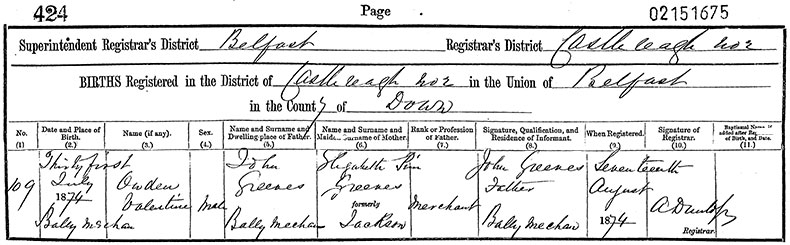 424 Page 02151675
Superintendent Registrar's District Belfast Registrar's District Castlereagh No 2
BIRTHS Registered in the District of Castlereagh No 2 in the Union of Belfast
in the County of Down
No. Date and Place of Birth. Name (if any). Sex. Name and Surname and Dwelling-place of Father. Name and Surname and Maiden Surname of Mother. Rank or Profession of Father. Signature, Qualification, and Residence of Informant. When Registered. Signature of Registrar. Baptismal Name if added after Registration of Birth, and Date.
(1) (2.) (3.) (4.) (5.) (6.) (7.) (8.) (9.) (10.) (11.)
109 Thirty first July 1874 Ballymechan
Owden Valentine
Male
John Greeves Ballymechan
Elizabeth Greeves formerly Jackson
Merchant
John Greeves Father Ballymechan
Seventeenth August 1874
A Dunlop Registrar.